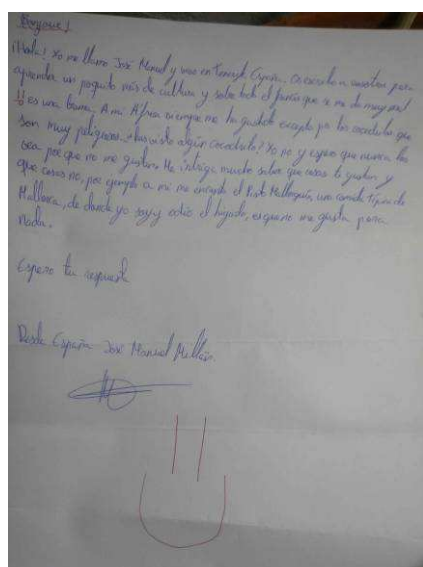 Bonjour!
¡Hola! Yo me llamo José Manuel y vivo en España. Os escribo a vosotros para
aprender un poquito más de cultura y sobre todo el francés que se me da muy mal
!! es una broma. A mi África siempre me ha gustado excepto por los cocodrilos que
son muy peligrosos. has visto algún cocodrilo? Yo no y espero que nunca los
vea porque no me gustan. Me intriga mucho saber que cosas te gustan y
que cosas no, por ejemplo a mi me encanta el una comida típica de
Mallorca, de donde yo soy y odio el hígado, es que no me gusta para
nada.
Espero tu respuesta
Desde España José Manuel